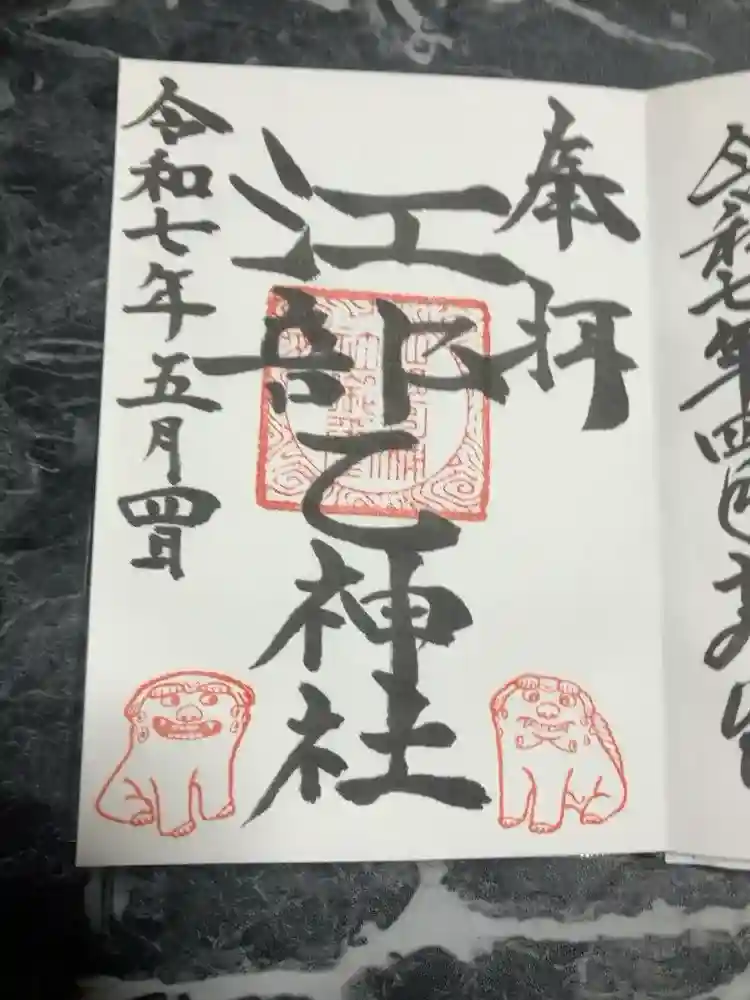 令和七年四
奉拝
江部乙神社
令和七年五月四日